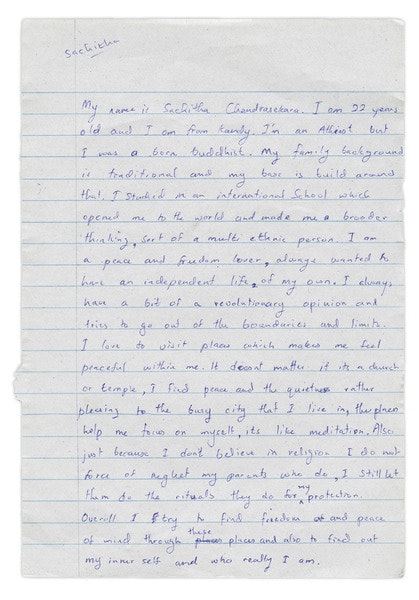 Sachitha
My name is Sachitha Chandrasekara. I am 22 years
old and I am from Kandy. I'm an Atheist but
I was a born buddhist. My family background
is traditional and my base is build around
that. I studied in an international School which
opened me to the world and made me a broader
thinking, sort of a multi ethnic person. I am
a peace and freedom lover, always wanted to
have an independent life, of my own. I always
have a bit of a revolutionary opinion and
tries to go out of the boundaries and limits.
I love to visit places which makes me feel
peaceful within me. It doesnt matter if its a church
or temple, I find peace and the quietness rather
pleasing to the busy city that I live in, the places
help me focus on myself, its like meditation. Also
just because I don't believe in religion I do not
force or neglect my parents who do, I still let
them do the rituals they do for my protection.
Overall I try to find freedom and peace
of mind through these places and also to find out
my inner self and who really I am.